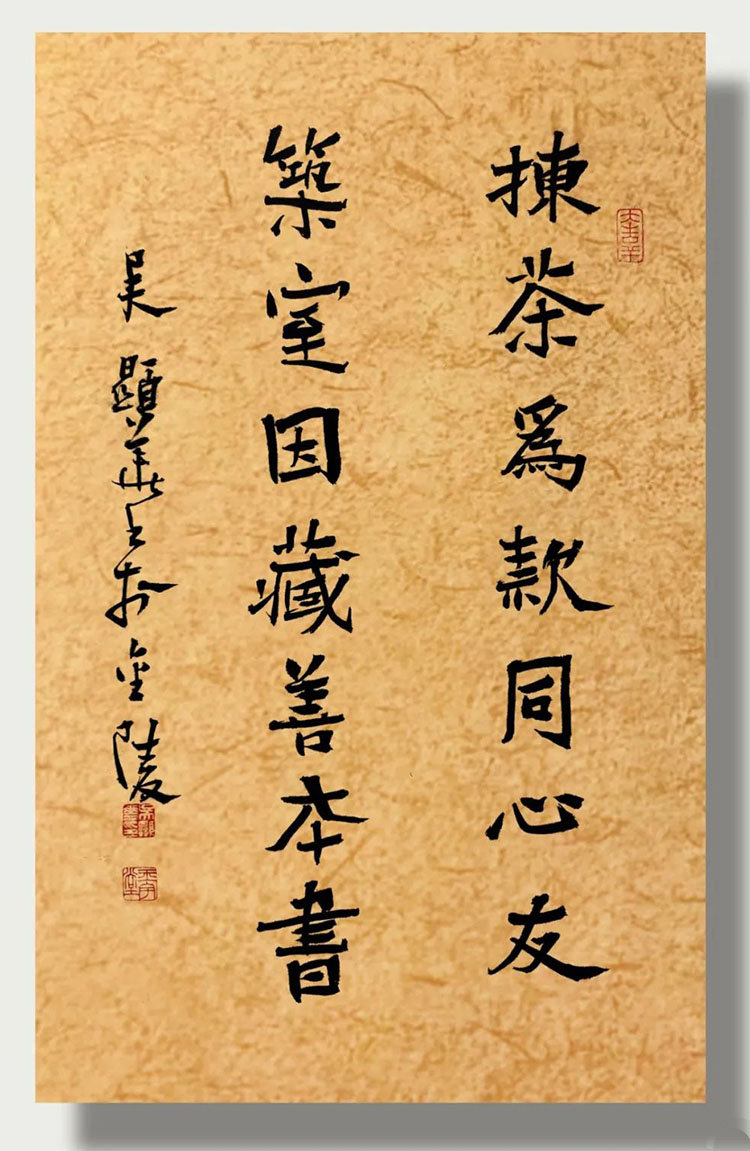 揀茶爲款同心友
築室因藏善本書
吴顯華書於金陵